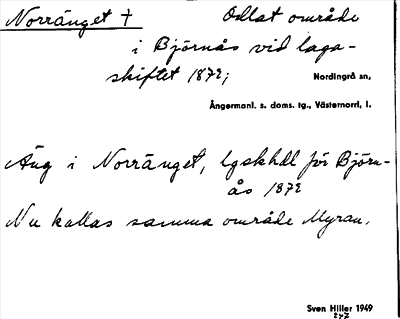 Norränget † Odlat område
i Björnås vid laga-
skiftet 1872;
Nordingrå sn,
Ångermanl. s. doms. tg., Västernorrl, l.
Äng i Norränget, lgskhdl för Björn-
ås 1872
Nu kallas samma område Myran.
Sven Hiller 1949